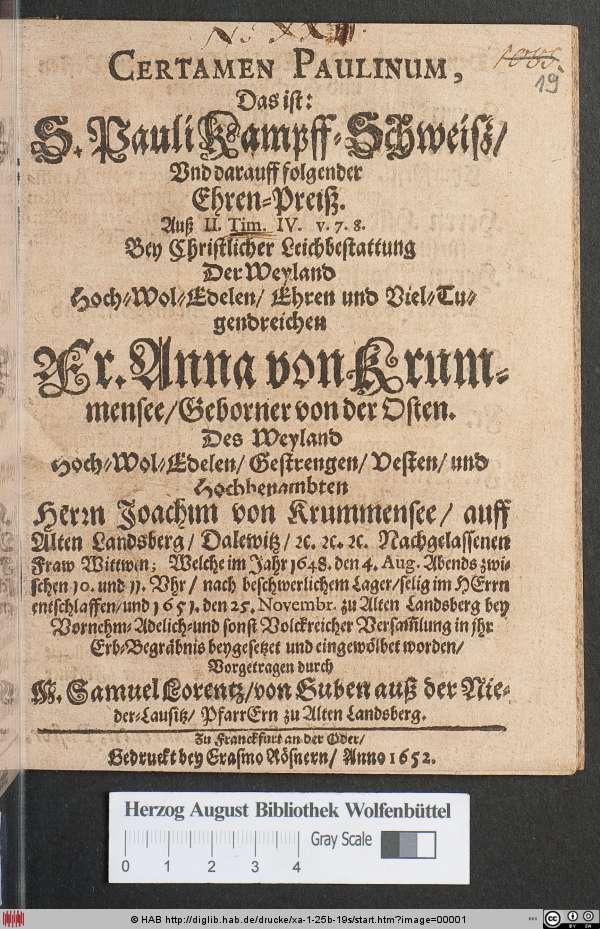 No XXIII.
1085.
19
CERTAMEN PAULINUM,
Das ist:
S. Pauli Kampff-Schweiß/
Vnd darauff folgender
Ehren-Preiß.
Auß II. Tim. IV. v. 7. 8.
Bey Christlicher Leichbestattung
Der Weyland
Hoch-Wol-Edelen/ Ehren und Viel-Tu-
gendreichen
Fr. Anna von Krum-
mensee/ Geborner von der Osten.
Des Weyland
Hoch-Wol-Edelen/ Gestrengen/ Vesten/ und
Hochbenambten
Herrn Joachim von Krummensee/ auff
Alten Landsberg/ Dalewitz/ ꝛc. ꝛc. ꝛc. Nachgelassenen
Fraw Wittwen; Welche im Jahr 1648. den 4. Aug. Abends zwi-
schen 10. und 11. Vhr/ nach beschwerlichem Lager/ selig im HErrn
entschlaffen/ und 1651. den 25. Novembr. zu Alten Landsberg bey
Vornehm-Adelich-und sonst Volckreicher Versam̃lung in jhr
Erb-Begräbnis beygesetzet und eingewölbet worden/
Vorgetragen durch
M. Samuel Lorentz/ von Guben auß der Nie-
der-Lausitz/ PfarrErn zu Alten Landsberg.
Zu Franckfurt an der Oder/
Gedruckt bey Erasmo Rösnern/ Anno 1652.
Herzog August Bibliothek Wolfenbüttel
Gray Scale
0 1 2 3 4
© HAB http://diglib.hab.de/drucke/xa-1-25b-19s/start.htm?image=00001
cc BY SA